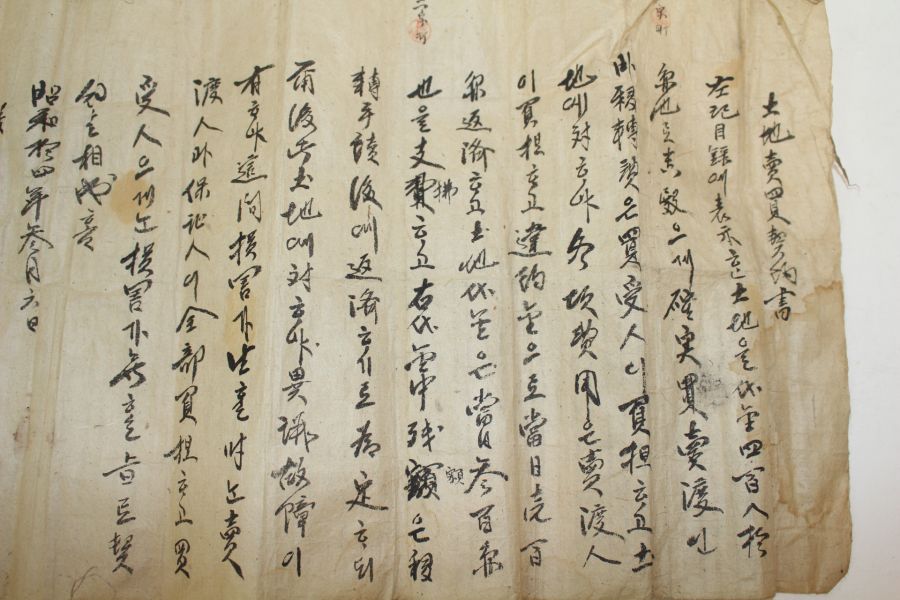 土地賣買契約書
左記目錄에表示한土地을代金四百八拾
円也로 을 確実賣渡
移轉費은買受人이負担하고土
地에対하야各項費用은賣渡人
이負担하고違約金으로當日壱百
円返済하고土地代金은當日参百円
也을支拂하고右代金中残額은移
轉手續後에返済하기로為定하되
爾後此土地에対하야異議故障이
有하야這間損害가生할時는賣
渡人과保証人이全部負担하고買
受人으게는損害가無할旨로契
約相
昭和拾四年参月六日